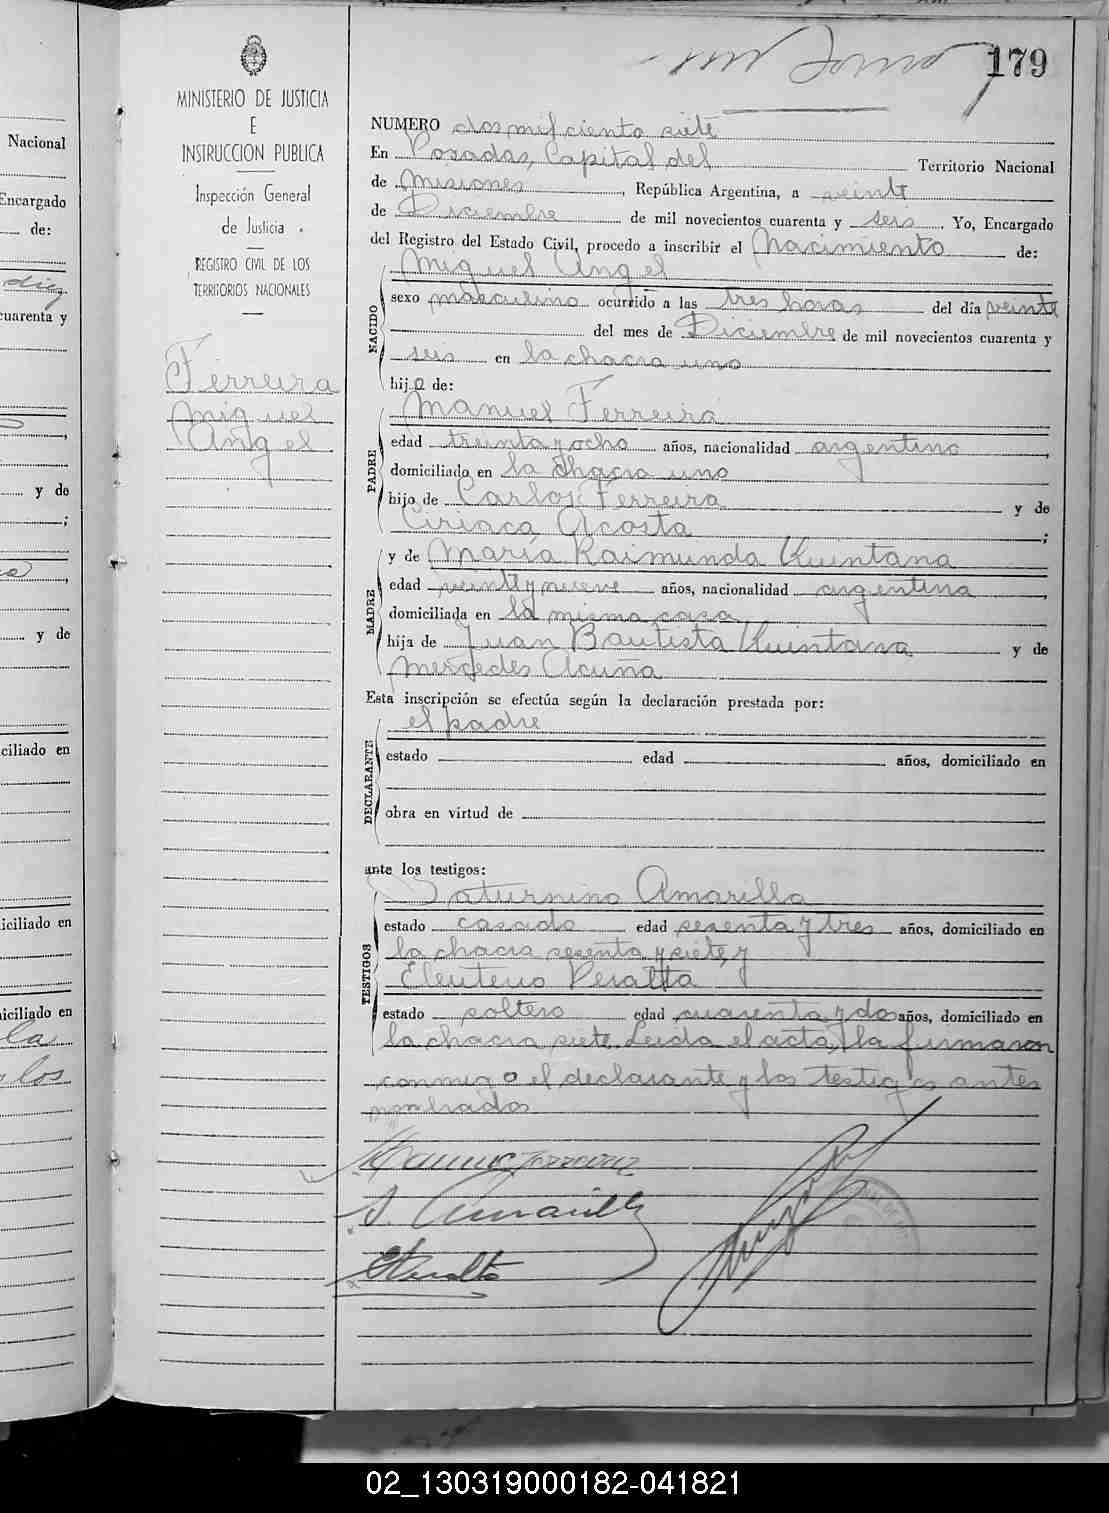 179
MINISTERIO DE JUSTICIA
E
INSTRUCCION PUBLICA
Inspección General
de Justicia
REGISTRO CIVIL DE LOS
TERRITORIOS NACIONALES
Ferreira
Miguel
Angel
NUMERO dos mil ciento siete
En Posadas, Capital del Territorio Nacional
de Misiones, República Argentina, a veinte
de Diciembre de mil novecientos cuarenta y seis Yo, Encargado
del Registro del Estado Civil, procedo a inscribir el Nacimiento de:
NACIDO
Miguel Angel
sexo masculino ocurrido a las tres horas del día veinte
del mes de Diciembre de mil novecientos cuarenta y
seis en la chacra uno
hijo de:
PADRE
Manuel Ferreira
edad treinta y ocho años, nacionalidad argentino,
domiciliado en la chacra uno
hijo de Carlos Ferreira y de
Ciriaca Acosta;
MADRE
y de María Raimunda Quintana
edad veinte y nueve años, nacionalidad argentina,
domiciliada en la misma casa
hija de Juan Bautista Quintana y de
Mercedes Acuña
Esta inscripción se efectúa según la declaración prestada por:
DECLARANTE
el padre
estado edad años, domiciliado en
obra en virtud de
ante los testigos:
TESTIGOS
Saturnino Amarilla
estado casado edad sesenta y tres años, domiciliado en
la chacra sesenta y siete, y
Eleuterio Peralta
estado soltero edad cuarenta y dos años, domiciliado en
la chacra siete. Leida el acta, la firmaron
conmigo el declarante y los testigos antes
nombrados
S. Amarilla
EPeralta
Nacional
Encargado
de:
diez
cuarenta y
y de
;
y de
ciliado en
iciliado en
iciliado en
la
los
02_130319000182-041821